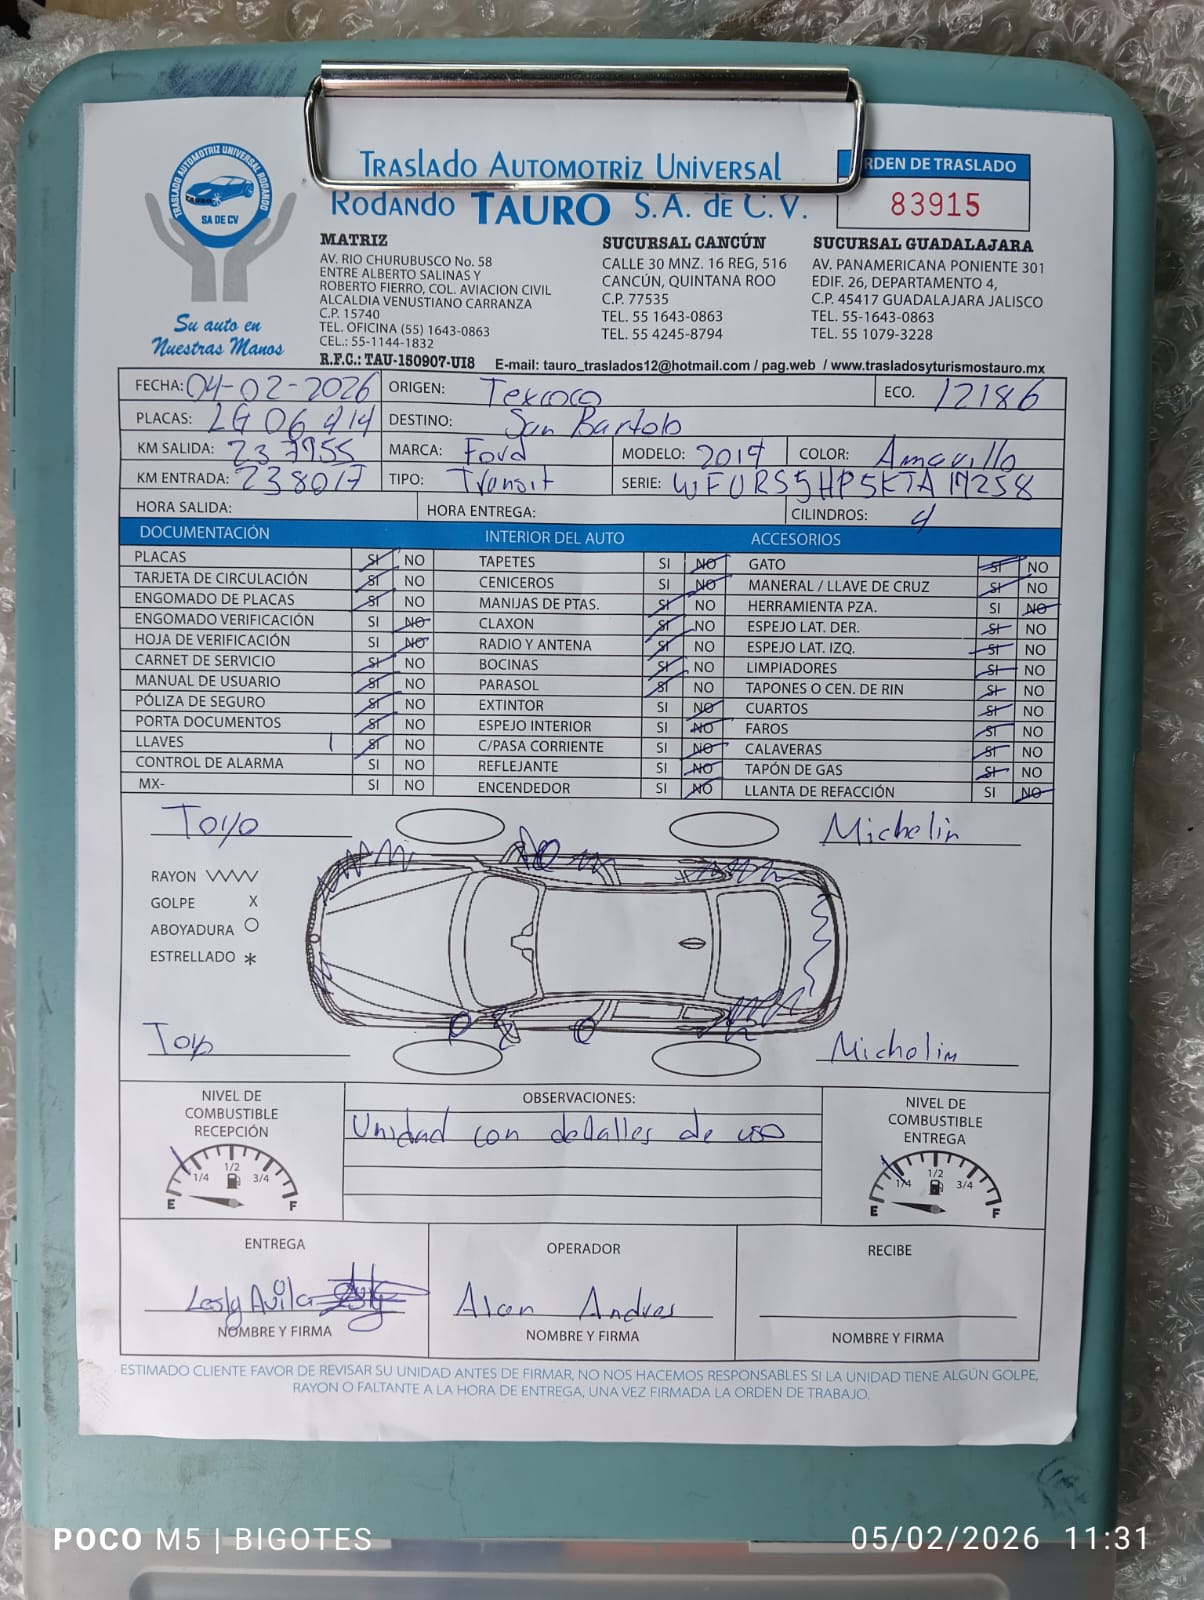 TRASLADO AUTOMOTRIZ UNIVERSAL RODANDO
TAURO
SA DE CV
Su auto en
Nuestras Manos
Traslado Automotriz Universal
Rodando TAURO S.A. de C.V.
RDEN DE TRASLADO
83915
MATRIZ
AV. RIO CHURUBUSCO No. 58
ENTRE ALBERTO SALINAS Y
ROBERTO FIERRO, COL. AVIACION CIVIL
ALCALDIA VENUSTIANO CARRANZA
C.P. 15740
TEL. OFICINA (55) 1643-0863
CEL.: 55-1144-1832
R.F.C.: TAU-150907-UI8
SUCURSAL CANCÚN
CALLE 30 MNZ. 16 REG, 516
CANCÚN, QUINTANA ROO
C.P. 77535
TEL. 55 1643-0863
TEL. 55 4245-8794
SUCURSAL GUADALAJARA
AV. PANAMERICANA PONIENTE 301
EDIF. 26, DEPARTAMENTO 4,
C.P. 45417 GUADALAJARA JALISCO
TEL. 55-1643-0863
TEL. 55 1079-3228
E-mail: tauro_traslados12@hotmail.com / pag.web / www.trasladosyturismostauro.mx
FECHA: 04-02-2026 ORIGEN: Texcoco ECO. 12186
PLACAS: LG 06 414 DESTINO: San Bartolo
KM SALIDA: 237955 MARCA: Ford MODELO: 2019 COLOR: Amarillo
KM ENTRADA: 238017 TIPO: Transit SERIE: WF0RS5HP5KTA17258
HORA SALIDA: HORA ENTREGA: CILINDROS: 4
DOCUMENTACIÓN INTERIOR DEL AUTO ACCESORIOS
PLACAS SI NO TAPETES SI NO GATO SI NO
TARJETA DE CIRCULACIÓN SI NO CENICEROS SI NO MANERAL / LLAVE DE CRUZ SI NO
ENGOMADO DE PLACAS SI NO MANIJAS DE PTAS. SI NO HERRAMIENTA PZA. SI NO
ENGOMADO VERIFICACIÓN SI NO CLAXON SI NO ESPEJO LAT. DER. SI NO
HOJA DE VERIFICACIÓN SI NO RADIO Y ANTENA SI NO ESPEJO LAT. IZQ. SI NO
CARNET DE SERVICIO SI NO BOCINAS SI NO LIMPIADORES SI NO
MANUAL DE USUARIO SI NO PARASOL SI NO TAPONES O CEN. DE RIN SI NO
PÓLIZA DE SEGURO SI NO EXTINTOR SI NO CUARTOS SI NO
PORTA DOCUMENTOS SI NO ESPEJO INTERIOR SI NO FAROS SI NO
LLAVES 1 SI NO C/PASA CORRIENTE SI NO CALAVERAS SI NO
CONTROL DE ALARMA SI NO REFLEJANTE SI NO TAPÓN DE GAS SI NO
MX- SI NO ENCENDEDOR SI NO LLANTA DE REFACCIÓN SI NO
Toyo Michelin
RAYON
GOLPE X
ABOYADURA
ESTRELLADO *
Toyo Michelin
NIVEL DE
COMBUSTIBLE
RECEPCIÓN
E 1/4 1/2 3/4 F
OBSERVACIONES:
Unidad con detalles de uso
NIVEL DE
COMBUSTIBLE
ENTREGA
E 1/4 1/2 3/4 F
ENTREGA
Lesly Avila
NOMBRE Y FIRMA
OPERADOR
Alan Andres
NOMBRE Y FIRMA
RECIBE
NOMBRE Y FIRMA
ESTIMADO CLIENTE FAVOR DE REVISAR SU UNIDAD ANTES DE FIRMAR, NO NOS HACEMOS RESPONSABLES SI LA UNIDAD TIENE ALGÚN GOLPE,
RAYON O FALTANTE A LA HORA DE ENTREGA, UNA VEZ FIRMADA LA ORDEN DE TRABAJO.
POCO M5 | BIGOTES
05/02/2026 11:31